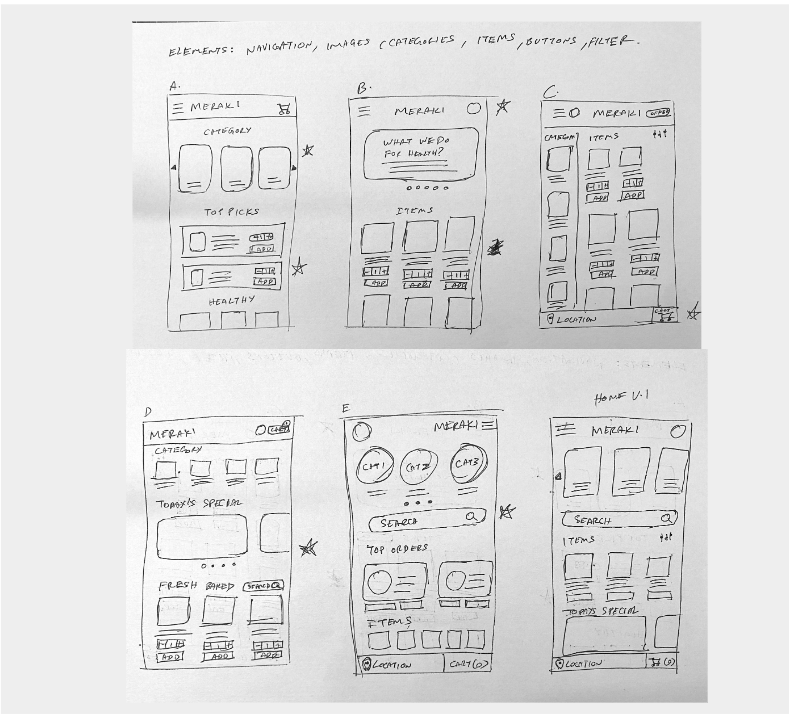 ELEMENTS: NAVIGATION, IMAGES, CATEGORIES, ITEMS, BUTTONS, FILTER.
A.
MERAKI
CATEGORY
TOP PICKS
-|1|+
ADD
-|1|+
ADD
HEALTHY
B.
MERAKI
WHAT WE DO
FOR HEALTH?
ITEMS
-|1|+ -|1|+ -|1|+
ADD ADD ADD
C.
MERAKI
ITEMS
-|1|+ -|1|+
ADD ADD
-|1|+ -|1|+
ADD ADD
LOCATION CART
D
MERAKI CART
CATEGORY
TODAY'S SPECIAL
FRESH BAKED SEARCH
-|1|+ -|1|+ -|1|+
ADD ADD ADD
E
MERAKI
CAT1 CAT2 CAT3
SEARCH
TOP ORDERS
ITEMS
LOCATION CART(0)
HOME V.1
MERAKI
SEARCH
ITEMS
TODAY'S SPECIAL
LOCATION (0)